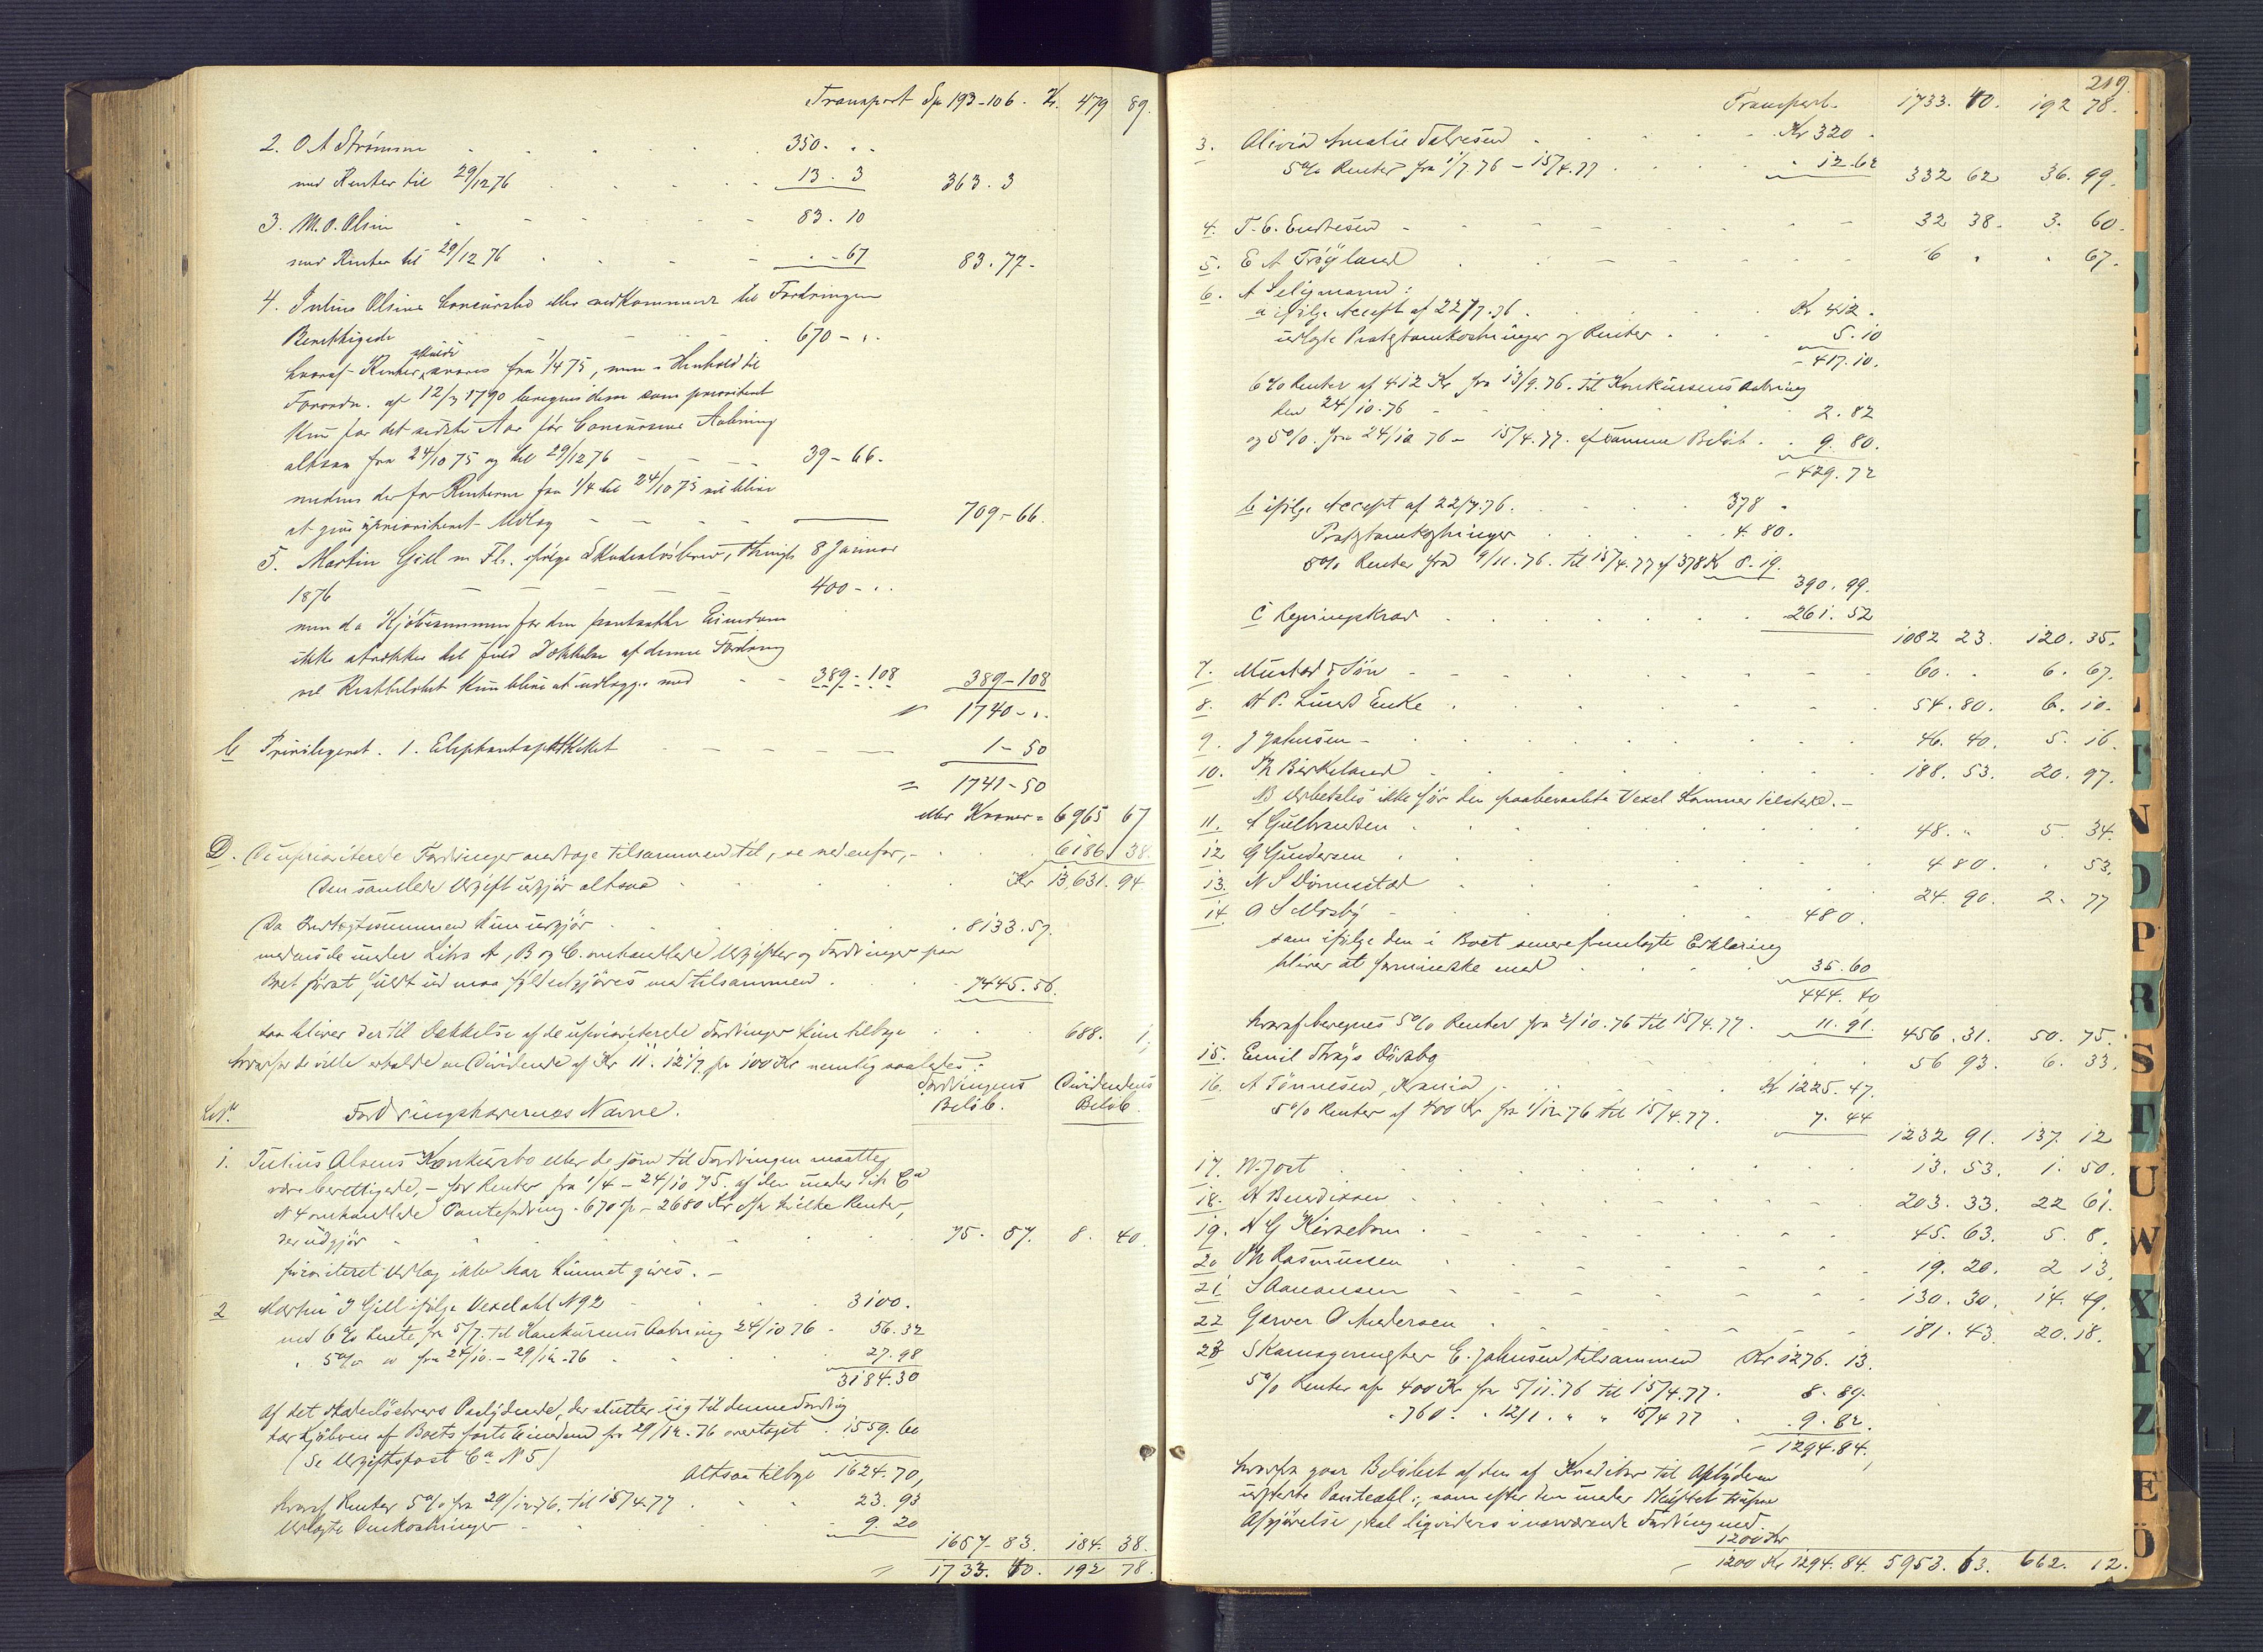 Transport Sp 193-106. Kr. 479 89.
2. O A Strømme 350. . .
med Renter til 29/12 76 13. 3 363. 3
3. M. O. Olsen 83. 10
med Renter til 29/12 76 . . 67 83. 77.
4. Julius Olsens Concursbo eller vedkommende til Fordringen
Berettigede 670 - . .
hvoraf Renter skulde svares fra 1/4 75, men i Henhold til
Forordn. af 12/3 1790 beregnes disse som prioriteret
kun for det sidste Aar før Concursens Aabning
altsaa fra 24/10 75 og til 29/12 76 39 - 66.
medens der for Renterne fra 1/4 til 24/10 75 vil blive
at give uprioriteret Udlæg 709 - 66.
5. Martin Gill m Fl. ifølge Skadesløsbrev, thinglt 8 Januar
1876 400 - . .
men da Kjøbesummen for den pantsatte Eiendom
ikke strækker til fuld Dækkelse af denne Fordring
vil Restbeløbet kun blive at udlægge med 389 - 108 389 - 108
" 1740 - . .
b Privilegeret. 1. Elephantapotheket 1 - 50
= 1741 - 50
eller Kroner = 6965 67
D. De uprioriterede Fordringer andrage tilsammen til, se nedenfor, - 6186 38.
Den samlede Udgift udgjør altsaa Kr 13,631. 94
Da Indtægtssummen kun udgjør 8133. 57.
medens de under Litra A, B og C. omhandlede Udgifter og Fordringer paa
Boet først fuldt ud maa fyldestgjøres med tilsammen 7445. 56.
saa bliver der til Dækkelse af de uprioriterede Fordringer kun tilbage 688. 1;
hvorfor de ville erholde en Dividende af Kr 11. 12 1/7 pr 100 Kr nemlig saaledes:
Fordringens Dividendens
Lit. Fordringshavernes Navne. Beløb. Beløb.
1. Julius Olsens Konkursbo eller de som til Fordringen maatte
være berettigede, - for Renter fra 1/4 - 24/10 75. af den under Lit Ca
N 4 omhandlede Pantefordring - 670 Sp - 2680 Kr for hvilke Renter,
der udgjør 75. 57. 8. 40
prioriteret Udlæg ikke har kunnet gives. -
2 Martin J Gill ifølge Vexelobl N 92 3100.
med 6% Rente fra 5/7. til Konkursens Aabning 24/10 76 - 56. 32
" 5% " fra 24/10. - 29/12. 76 27. 98
3184. 30
Af det skadesløsbrevs Paalydende, der slutter sig til denne Fordring
har Kjøberen af Boets faste Eiendom fra 29/12. 76 overtaget 1559. 60
(Se Udgiftspost Ca N 5)
Altsaa tilbage 1624. 70,
Hvoraf Renter 5% fra 29/12 76. til 15/4 77 23. 93
Udlagte Omkostninger 9. 20
1657. 83. 184. 38.
" 1733. 40. 192 78.
219.
Transport. 1733. 40. 192 78.
3. Olivia Amalie Salvesen Kr 320
5% Renter fra 1/7 76 - 15/4. 77 12. 62 332 62 36. 99.
4. T. C. Endresen 32 38. 3. 60.
5. E A Frøyland 6 . . 67.
6. A Seligmann:
a ifølge Accept af 22/7. 76 Kr 412.
udlagte Protestomkostninger og Renter 5. 10
- 417. 10.
6% Renter af 412 Kr fra 13/9. 76. til Konkursens Aabning
den 24/10. 76 2. 82
og 5%. fra 24/10 76 - 15/4. 77. af samme Beløb 9. 80.
- 429. 72
b ifølge Accept af 22/7. 76. 378 .
Protestomkostninger 4. 80.
5% Renter fra 9/11. 76. til 15/4. 77 af 378 Kr 8. 19.
390. 99.
C Regningskrav 261. 52
1082 23. 120. 35.
7. Mustad & Søn 60. . 6. 67.
8. H P. Lunds Enke 54. 80. 6. 10.
9. J Johnsen 46. 40. 5. 16.
10. Th Birkeland 188. 53. 20. 97.
NB Udbetales ikke før den paaberaabte Vexel kommer tilstede. -
11. A Gulbrandsen 48. " 5. 34.
12 G Gundersen 4 80. . 53.
13. N S Dønnestad 24. 90. 2. 77
14. O S Mosby 480.
som ifølge den i Boet senere fremlagte Erklæring
bliver at forminske med 35. 60
444. 40
hvoraf beregnes 5% Renter fra 2/10. 76 til 15/4. 77. 11. 91 456. 31. 50. 75.
15. Emil 56 93. 6. 33.
16. A Tønnesen, Kr 1225. 47.
5% Renter af 400 Kr fra 1/12 76 til 15/4. 77. 7. 44
1232 91. 137. 12
17. W. Jost 13. 53. 1. 50.
18. A Bendixsen 203. 33. 22 61.
19. A G Kirsebom 45. 63. 5. 8.
20 Th Rasmussen 19. 20. 2 13.
21. S Aanonsen 130. 30. 14. 49.
22 Garver O Andersen 181. 43. 20. 18.
23 Skomagermester E. Johnsen tilsammen Kr 1276. 13.
5% Renter af 400 Kr fra 5/11. 76 til 15/4. 77. 8. 89.
" 760. " 12/1. " " 15/4 77 9. 82.
- 1294. 84.
hvorfra gaar Beløbet af den af Kreditor til Opbyderen
udstedte Panteobl:, som efter den under Skiftet trufne
Afgjørelse skal liqvideres i nærværende Fordring med
1200 Kr
1200 Kr 1294. 84. 5953. 63. 662. 12.
N
O
P
R
S
T
U
W
X
Y
Z
Æ
Ö